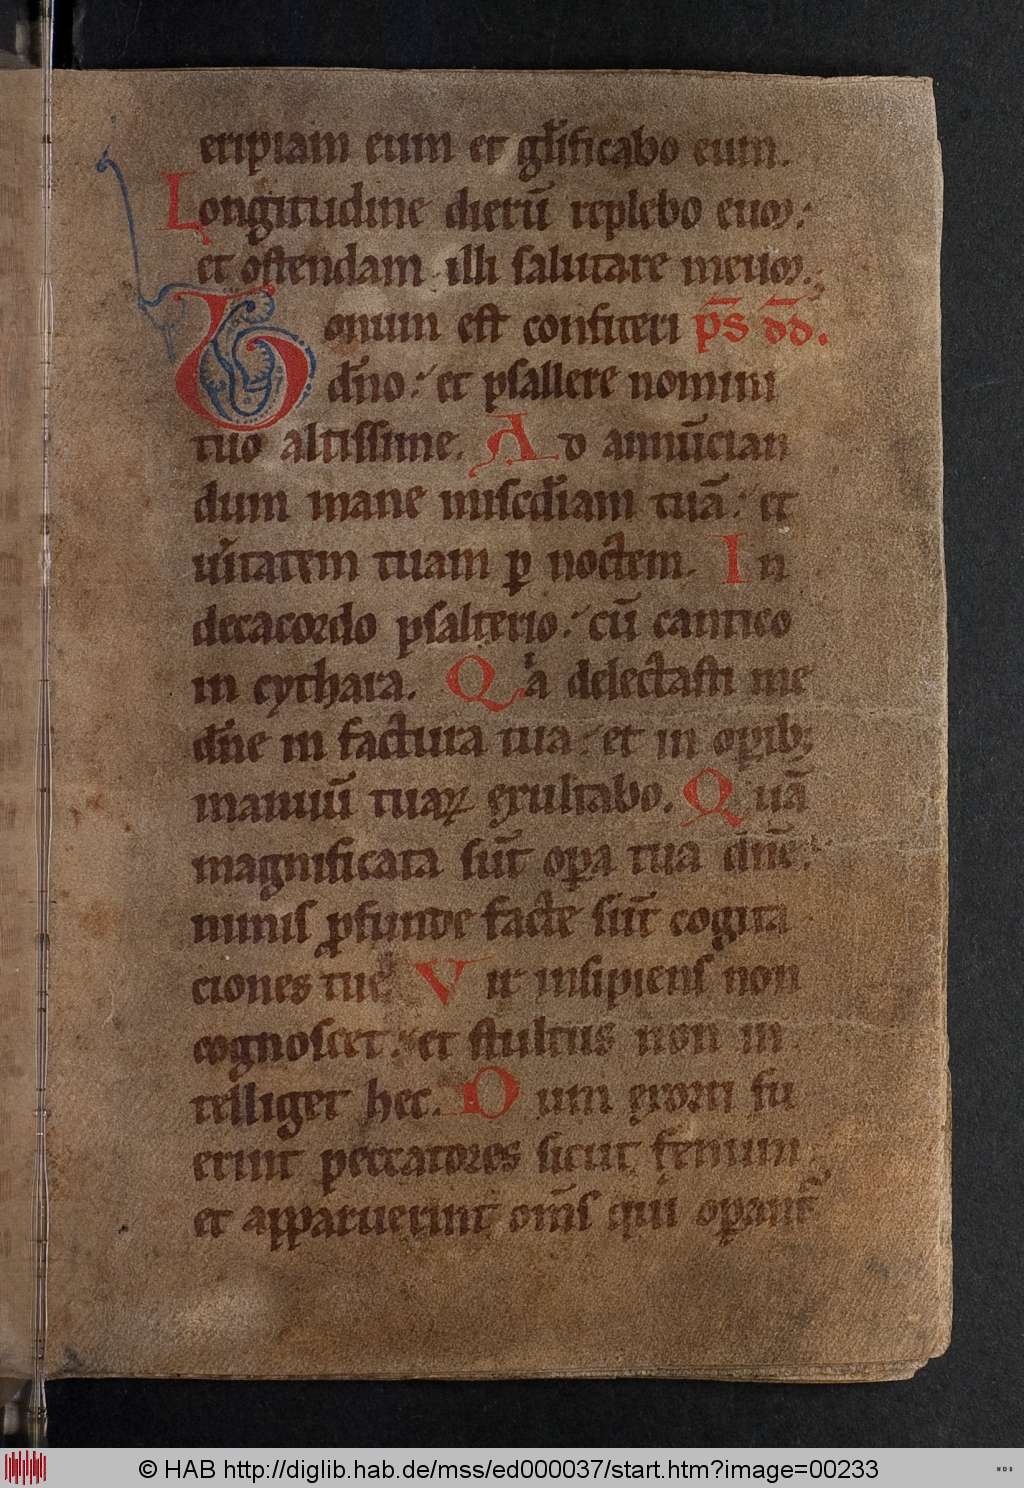 eripiam eum et gl̄ificabo eum.
Longitudine dierū replebo euꝫ:
et ostendam illi salutare meuꝫ.
Bonum est confiteri ps̄ dd̄.
dn̄o: et psallere nomini
tuo altissime. Ad annūcian
dum mane mis̄cdiam tuā: et
ūitatem tuam ꝑ noctem. In
decacordo psalterio: cū cantico
in cythara. Qͥa delectasti me
dn̄e in factura tua: et in oꝑibꝫ
manuū tuaꝝ ęxultabo. Quā
magnificata sūt oꝑa tua dn̄e:
nimis ꝓfunde facte sūt cogita
ciones tue. Vir insipiens non
cognoscet: et stultus non in
telliget hec. Dum ęxorti fu
erint peccatores sicut fenum:
et apparuerint om̄s qui oꝑant᷑
© HAB http://diglib.hab.de/mss/ed000037/start.htm?image=00233